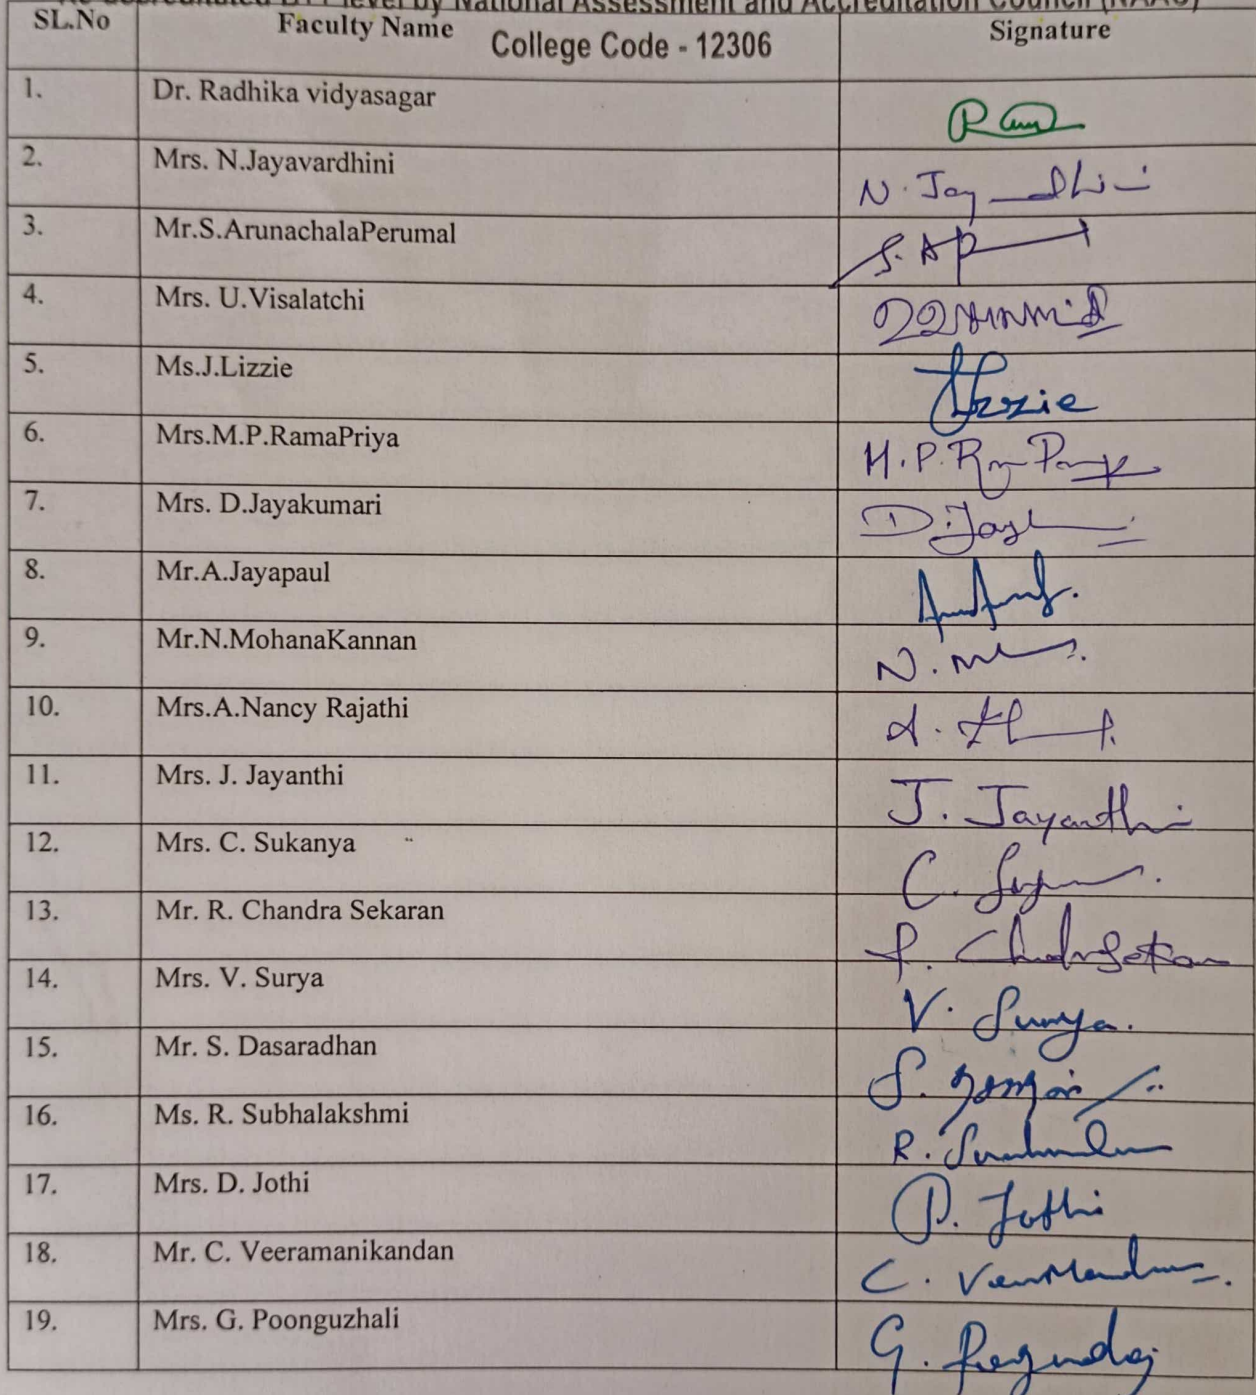 Re-accreditated B++ level by National Assessment and Accreditation Council (NAAC)
SL.No Faculty Name Signature
College Code - 12306
1. Dr. Radhika vidyasagar
2. Mrs. N.Jayavardhini
3. Mr.S.ArunachalaPerumal
4. Mrs. U.Visalatchi
5. Ms.J.Lizzie Lizzie
6. Mrs.M.P.RamaPriya M.P.
7. Mrs. D.Jayakumari
8. Mr.A.Jayapaul
9. Mr.N.MohanaKannan
10. Mrs.A.Nancy Rajathi
11. Mrs. J. Jayanthi J. Jayanthi
12. Mrs. C. Sukanya
13. Mr. R. Chandra Sekaran
14. Mrs. V. Surya V. Surya.
15. Mr. S. Dasaradhan
16. Ms. R. Subhalakshmi
17. Mrs. D. Jothi D. Jothi
18. Mr. C. Veeramanikandan
19. Mrs. G. Poonguzhali